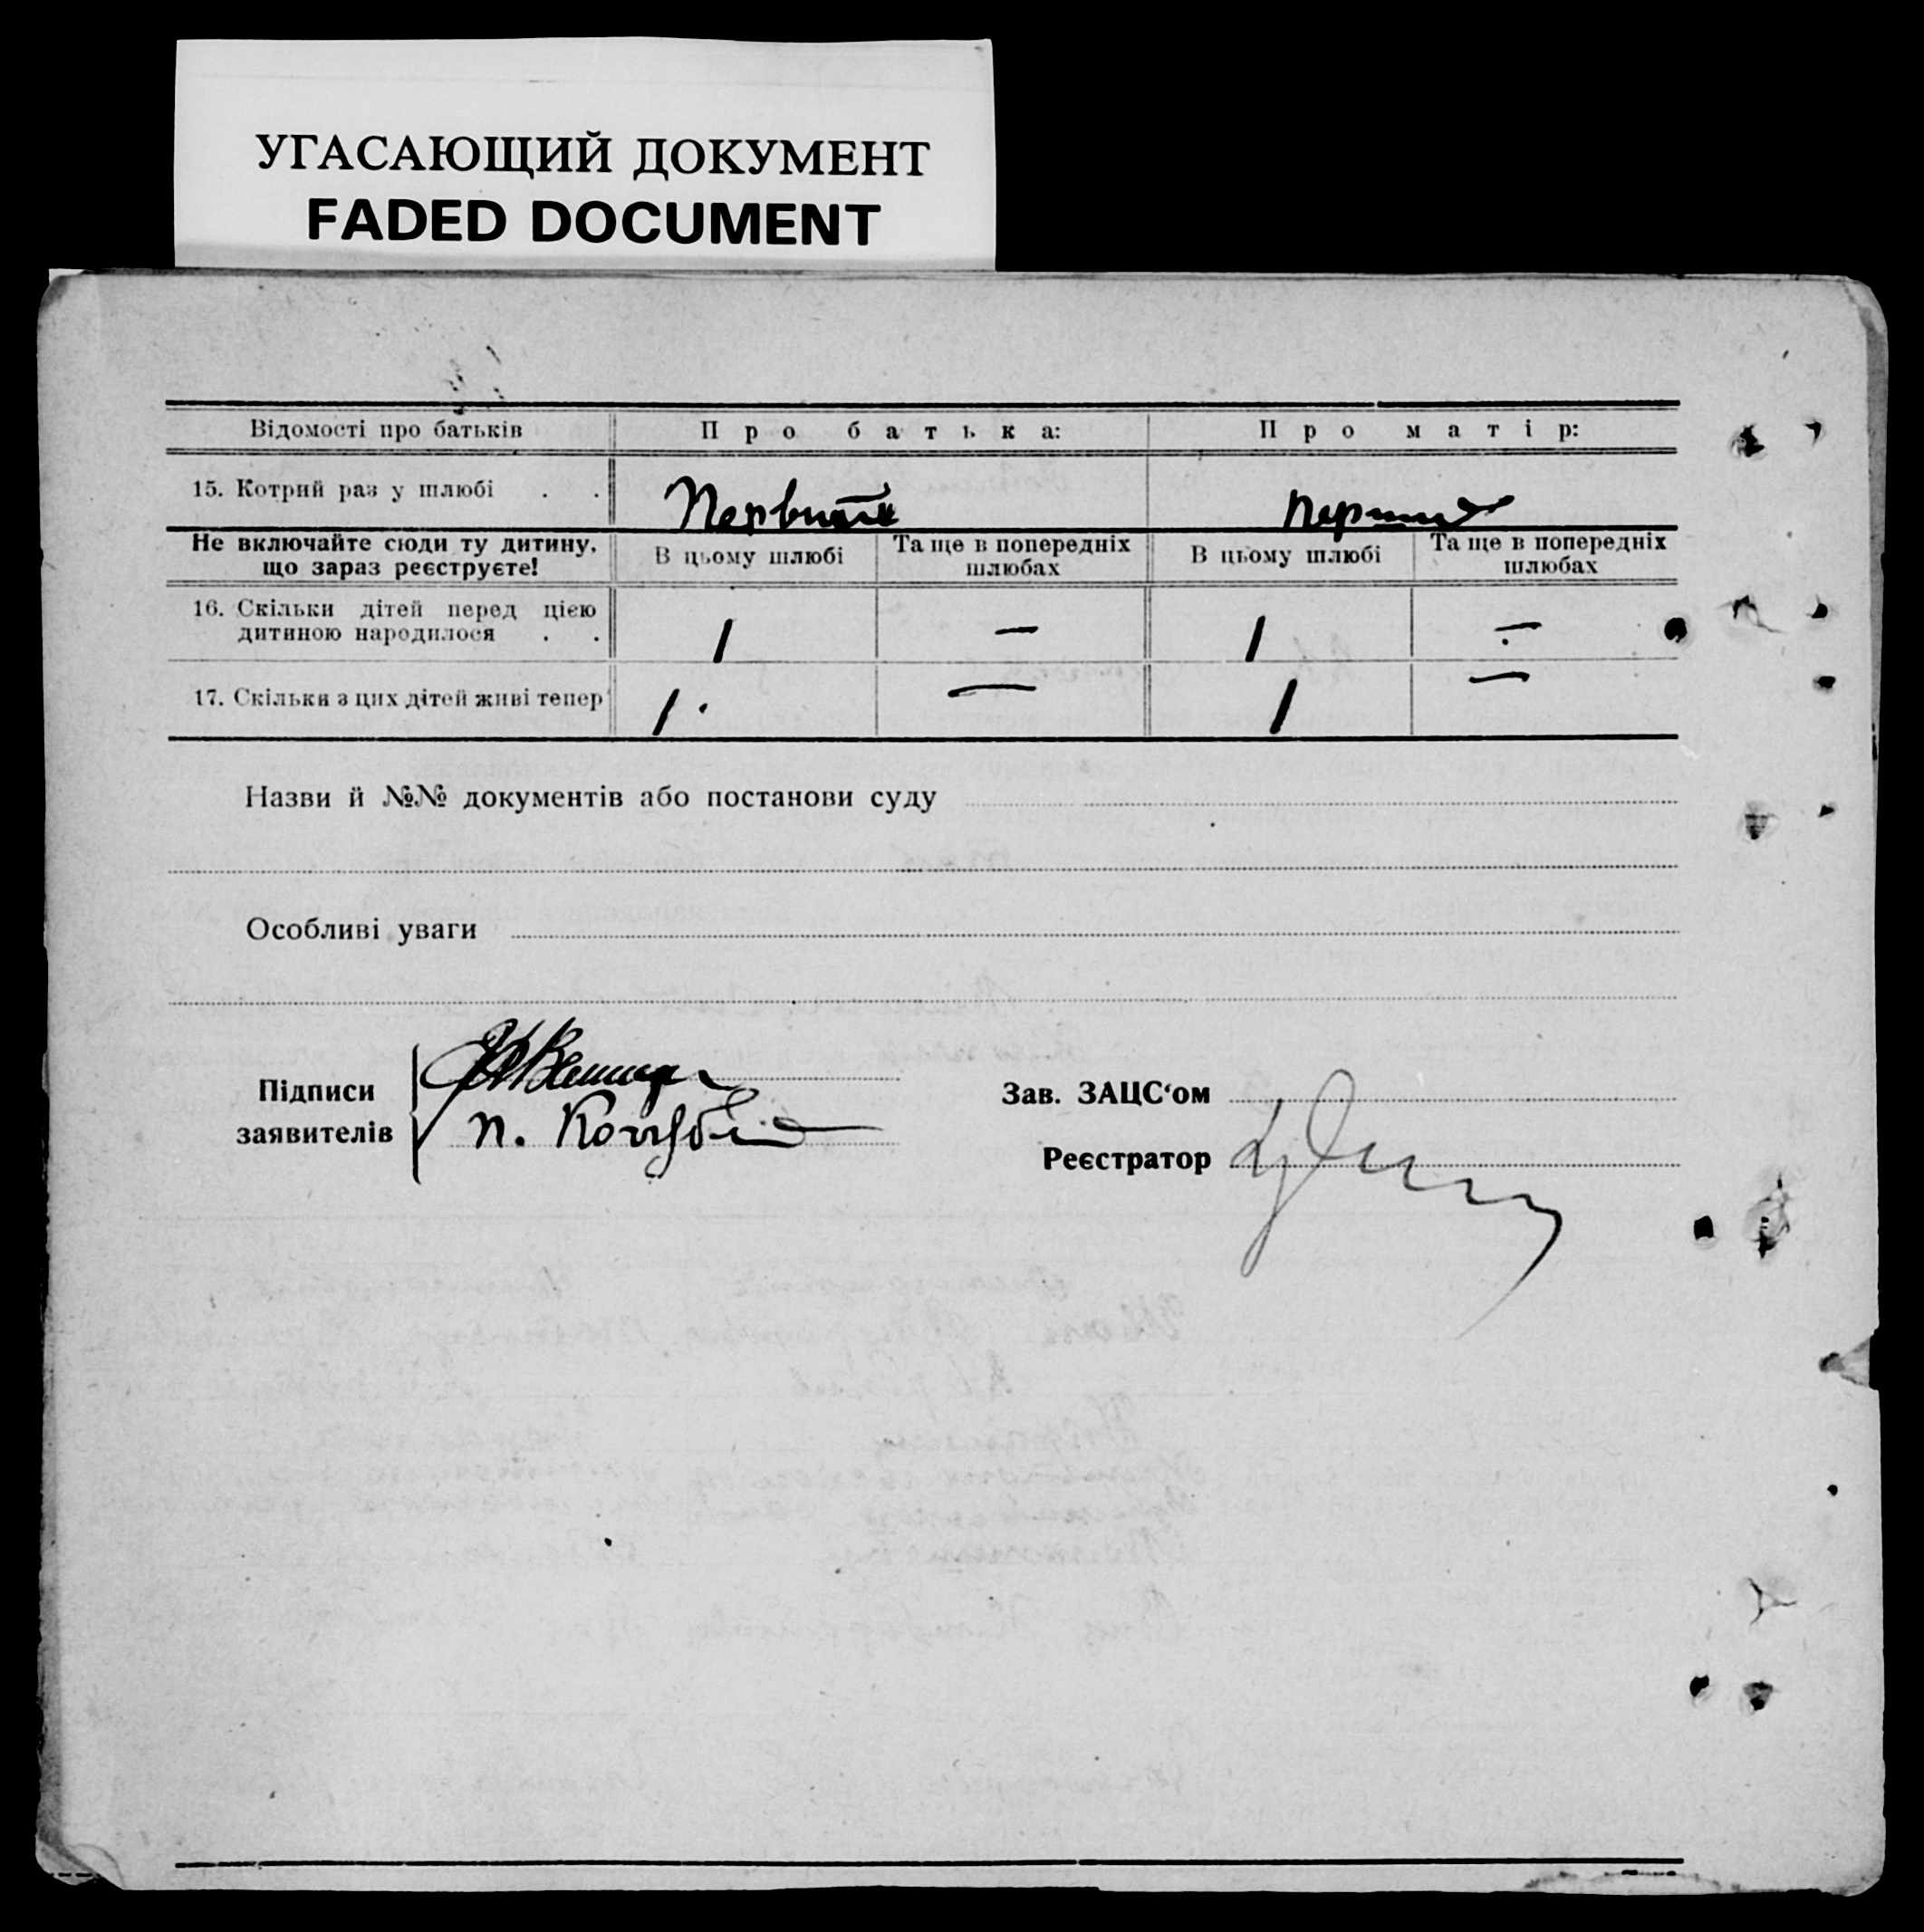 УГАСАЮЩИЙ ДОКУМЕНТ
FADED DOCUMENT
Відомості про батьків Про батька: Про матір:
15. Котрий раз у шлюбі . .
Не включайте сюди ту дитину, що зараз реєструєте! В цьому шлюбі Та ще в попередніх шлюбах В цьому шлюбі Та ще в попередніх шлюбах
16. Скільки дітей перед цією
дитиною народилося . . 1 — 1 —
17. Скільки з цих дітей живі тепер 1. — 1 —
Назви й №№ документів або постанови суду
Особливі уваги
Підписи
заявителів
П.
Зав. ЗАЦС'ом
Реєстратор